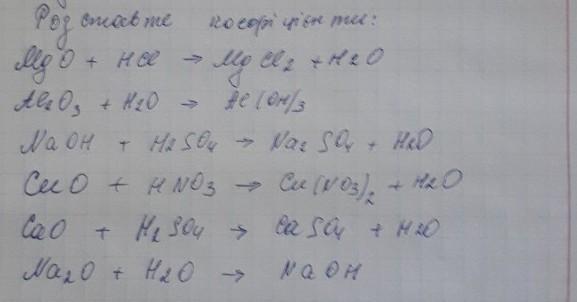 Розставте коефіцієнти:
MgO + HCl → MgCl2 + H2O
Al2O3 + H2O → Al(OH)3
NaOH + H2SO4 → Na2SO4 + H2O
CuO + HNO3 → Cu(NO3)2 + H2O
CaO + H2SO4 → CaSO4 + H2O
Na2O + H2O → NaOH